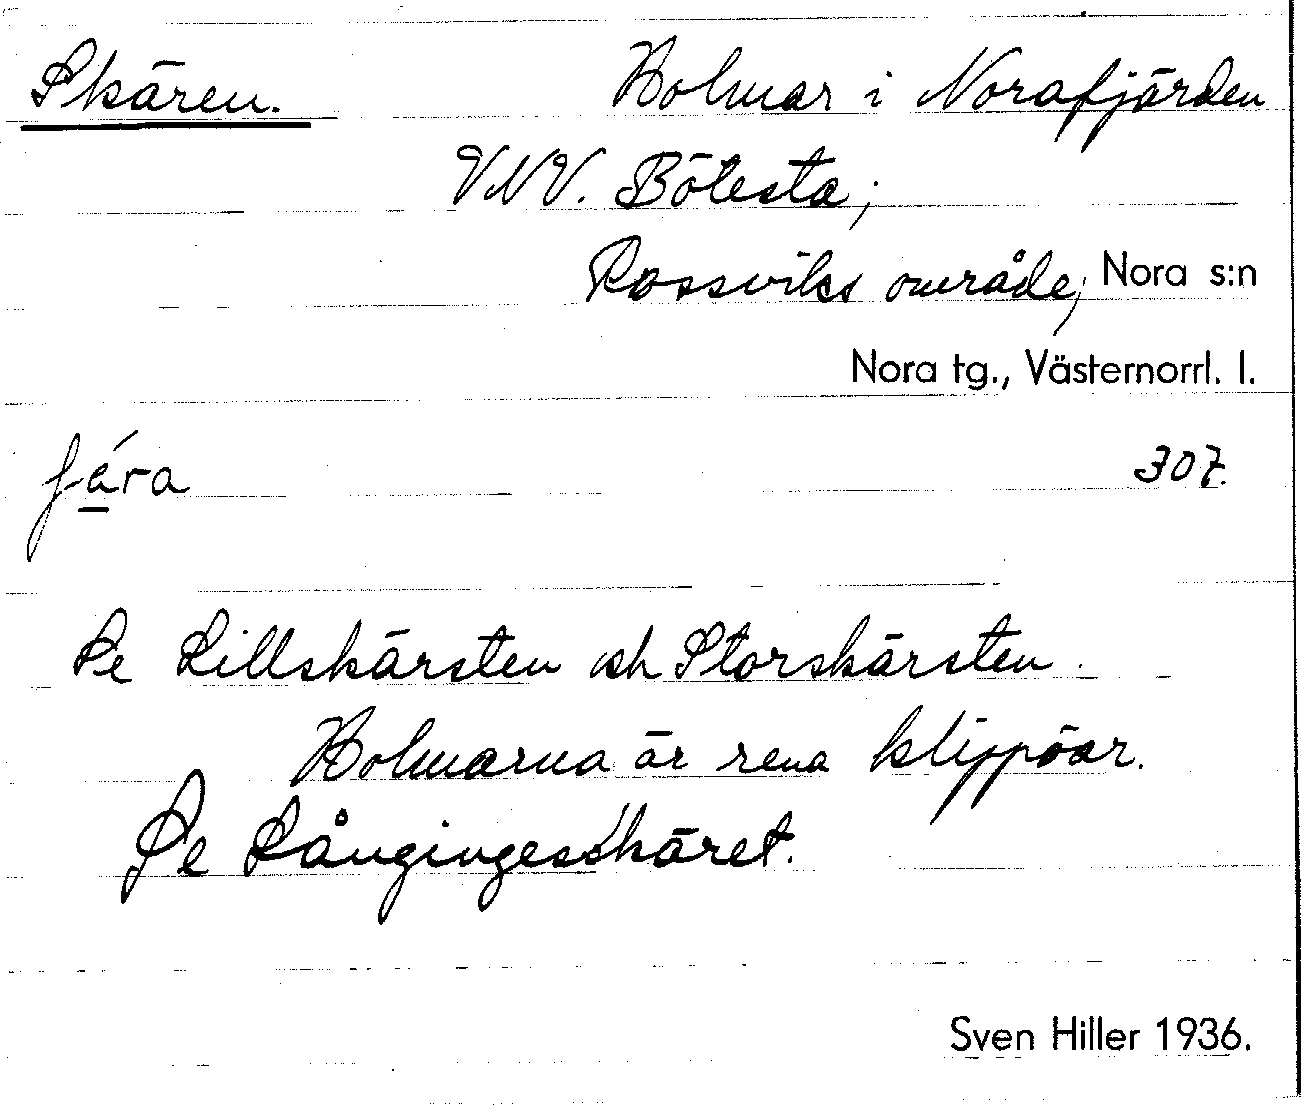 Skären. Holmar i Norafjärden
VNV. Bölesta;
Rossviks område; Nora s:n
Nora tg., Västernorrl. l.
307.
Se Lillskärsten och Storskärsten.
Holmarna är rena klippöar.
Se Långingesskäret.
Sven Hiller 1936.